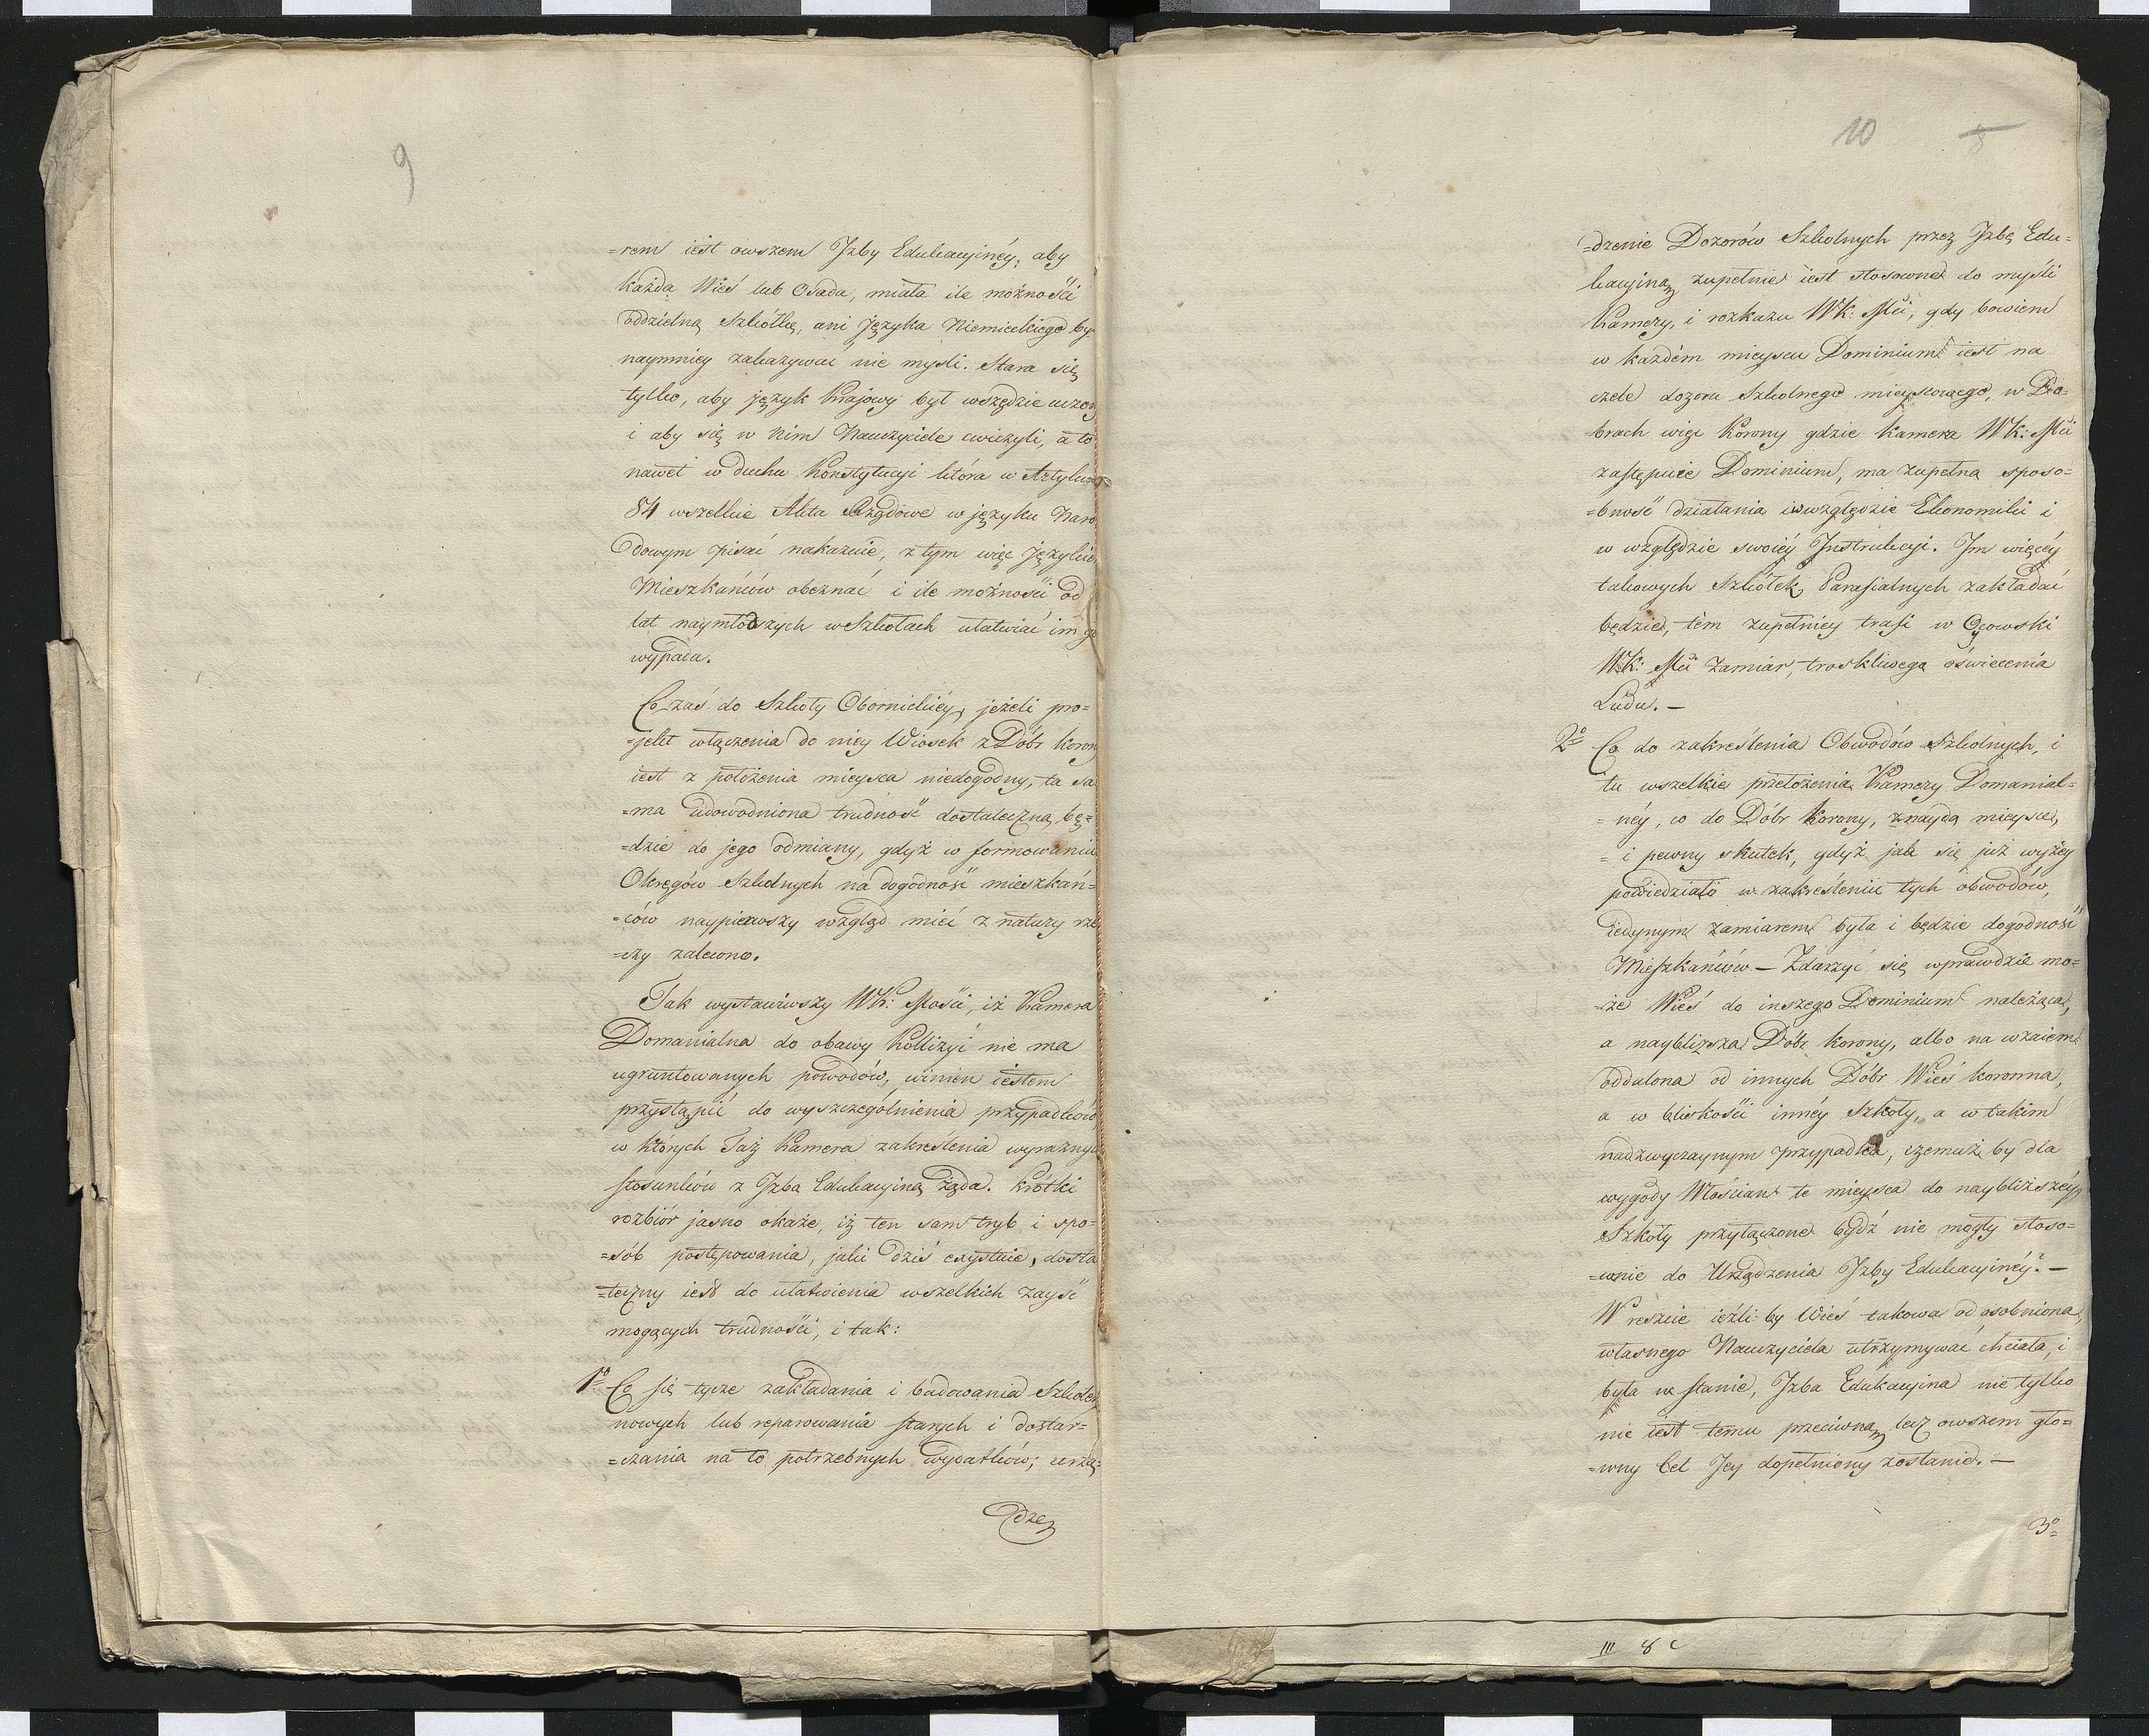 9
=rem iest owszem Jzby Edukacyinéy, aby
każda Wieś lub Osada, miała ile możności
oddzielną Szkółkę, ani Języka Niemieckiego by-
naymniey zakazywać nie myśli. Stara się
tylko, aby język Krajowy był wszędzie uczony
i aby się w nim Nauczyciele cwiczyli, a to
nawet w duchu Konstytucyi która w Artykule
84 wszelkie Akta Rządowe w języku Naro
dowym pisać nakazuie, z tym więc językiem
Mieszkańców obeznać i ile możności od
lat naymłodszych w Szkołach ułatwiać im go
wypada.
Co zaś do Szkoły Obornickiéy, jeżeli pro=
=jekt włączenia do niey Wiosek z Dóbr korony
iest z położenia mieysca niedogodny, ta sa
=ma udowodniona trudność dostateczną bę=
=dzie do jego odmiany, gdyż w formowaniu
Okręgów Szkolnych na dogodność mieszkań=
=ców naypierwszy wzgląd mieć z natury rze
=czy zalecono.
Tak wystawiwszy WK: Mości, iż Kamera
Domanialna do obawy Kollizyi nie ma
ugruntowanych powodów, winien iestem
przystąpić do wyszczególnienia przypadków
w których Taż Kamera zakreślenia wyraźnych
stosunków z Jzbą Edukacyiną żąda. Krótki
rozbiór jasno okaże, iż ten sam tryb i spo=
=sób postępowania, jaki dziś exystuie, dosta
=teczny iest do ułatwienia wszelkich zayść
mogących trudności, i tak:
1º Co się tycze zakładania i budowania Szkółek
nowych lub reparowania starych i dostar=
=czania na to potrzebnych wydatków; urzą=
dze
10
8
=dzenie Dozorów Szkolnych przez Jzbę Edu=
kacyiną zupełnie iest stosowne do myśli
Kamery, i rozkazu WK: Mci, gdy bowiem
w każdém mieyscu Dominium iest na
czele dozoru Szkolnego mieyscowego, w Do=
brach więc Korony gdzie Kamera WK: Mci
zastępuie Dominium, ma zupełną sposo=
=bność działania i w względzie Ekonomiki i
w względzie swoiéy Instrukcyi. Im więcéy
takowych Szkółek Parafialnych zakładać
będzie, tém zupełniey trafi w Oycowski
WK: Mci zamiar, troskliwego oświecenia
Ludu. —
2º Co do zakreślenia Obwodów Szkolnych, i
tu wszelkie przełożenia Kamery Domanial=
=néy, co do Dóbr Korony, znaydą mieysce,
= i pewny skutek, gdyż jak się już wyżey
powiedziało w zakreśleniu tych obwodów,
iedynym zamiarem była i będzie dogodność
Mieszkańców — Zdarzyć się wprawdzie mo=
=że Wieś do inszego Dominium należąca,
a naybliższa Dóbr korony, albo na wzaiem
oddalona od innych Dóbr Wieś koronna,
a w bliskości innéy Szkoły, a w takim
nadzwyczaynym przypadku, czemuż by dla
wygody Włościan te mieysca do naybliższéy
Szkoły przyłączone bydź nie mogły stoso=
=wnie do Urządzenia Jzby Edukacyinéy? —
W reszcie ieźli by Wieś takowa odosobniona,
własnego Nauczyciela utrzymywać chciała, i
była w stanie, Jzba Edukacyina nie tylko
nie iest temu przeciwną, lecz owszem głó=
=wny Cel Jey dopełniony zostanie. —
3º
III 8 c